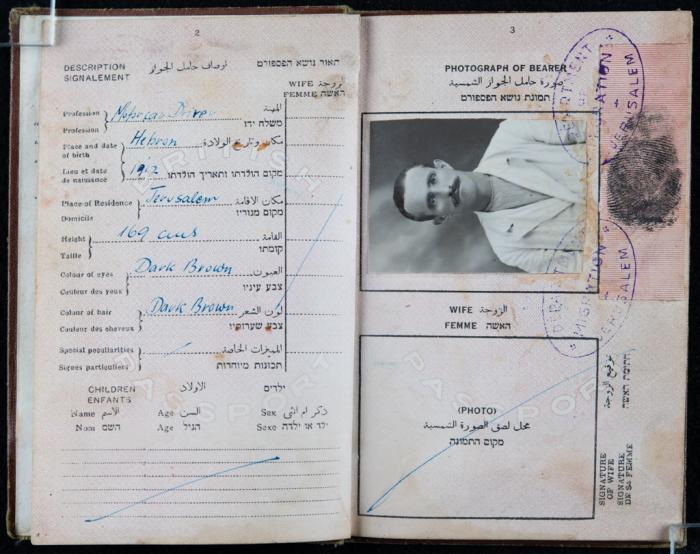 2
DESCRIPTION
SIGNALEMENT
اوصاف حامل الجواز
תאור נושא הפספורט
WIFE زوجة
FEMME האשה
Profession
Profession
Motorcar Driver
المهنة
משלח ידו
Place and date
of birth
Hebron
مكان وتاريخ الولادة
Lieu et date
de naissance
1912
מקום הולדתו ותאריך הולדתו
Place of Residence
Domicile
Jerusalem
مكان الاقامة
מקום מגוריו
Height
Taille
169 cms
القامة
קומתו
Colour of eyes
Couleur des yeux
Dark Brown
العيون
צבע עיניו
Colour of hair
Couleur des cheveux
Dark Brown
لون الشعر
צבע שערותיו
Special peculiarities
Signes particuliers
المميزات الخاصة
תכונות מיוחדות
BRITISH
PASSPORT
CHILDREN
ENFANTS
الاولاد
ילדים
Name الاسم Age السن Sex ذكر ام انثى
Nom השם Age הגיל Sexe ילד או ילדה
3
PHOTOGRAPH OF BEARER
صورة حامل الجواز الشمسية
תמונת נושא הפספורט
DEPARTMENT OF MIGRATION
JERUSALEM
WIFE الزوجة
FEMME האשה
DEPARTMENT OF MIGRATION
JERUSALEM
PASSPORT
(PHOTO)
محل لصق الصورة الشمسية
מקום התמונה
SIGNATURE
OF WIFE
SIGNATURE
DE SA FEMME
توقيع الزوجة
חתימת האשה